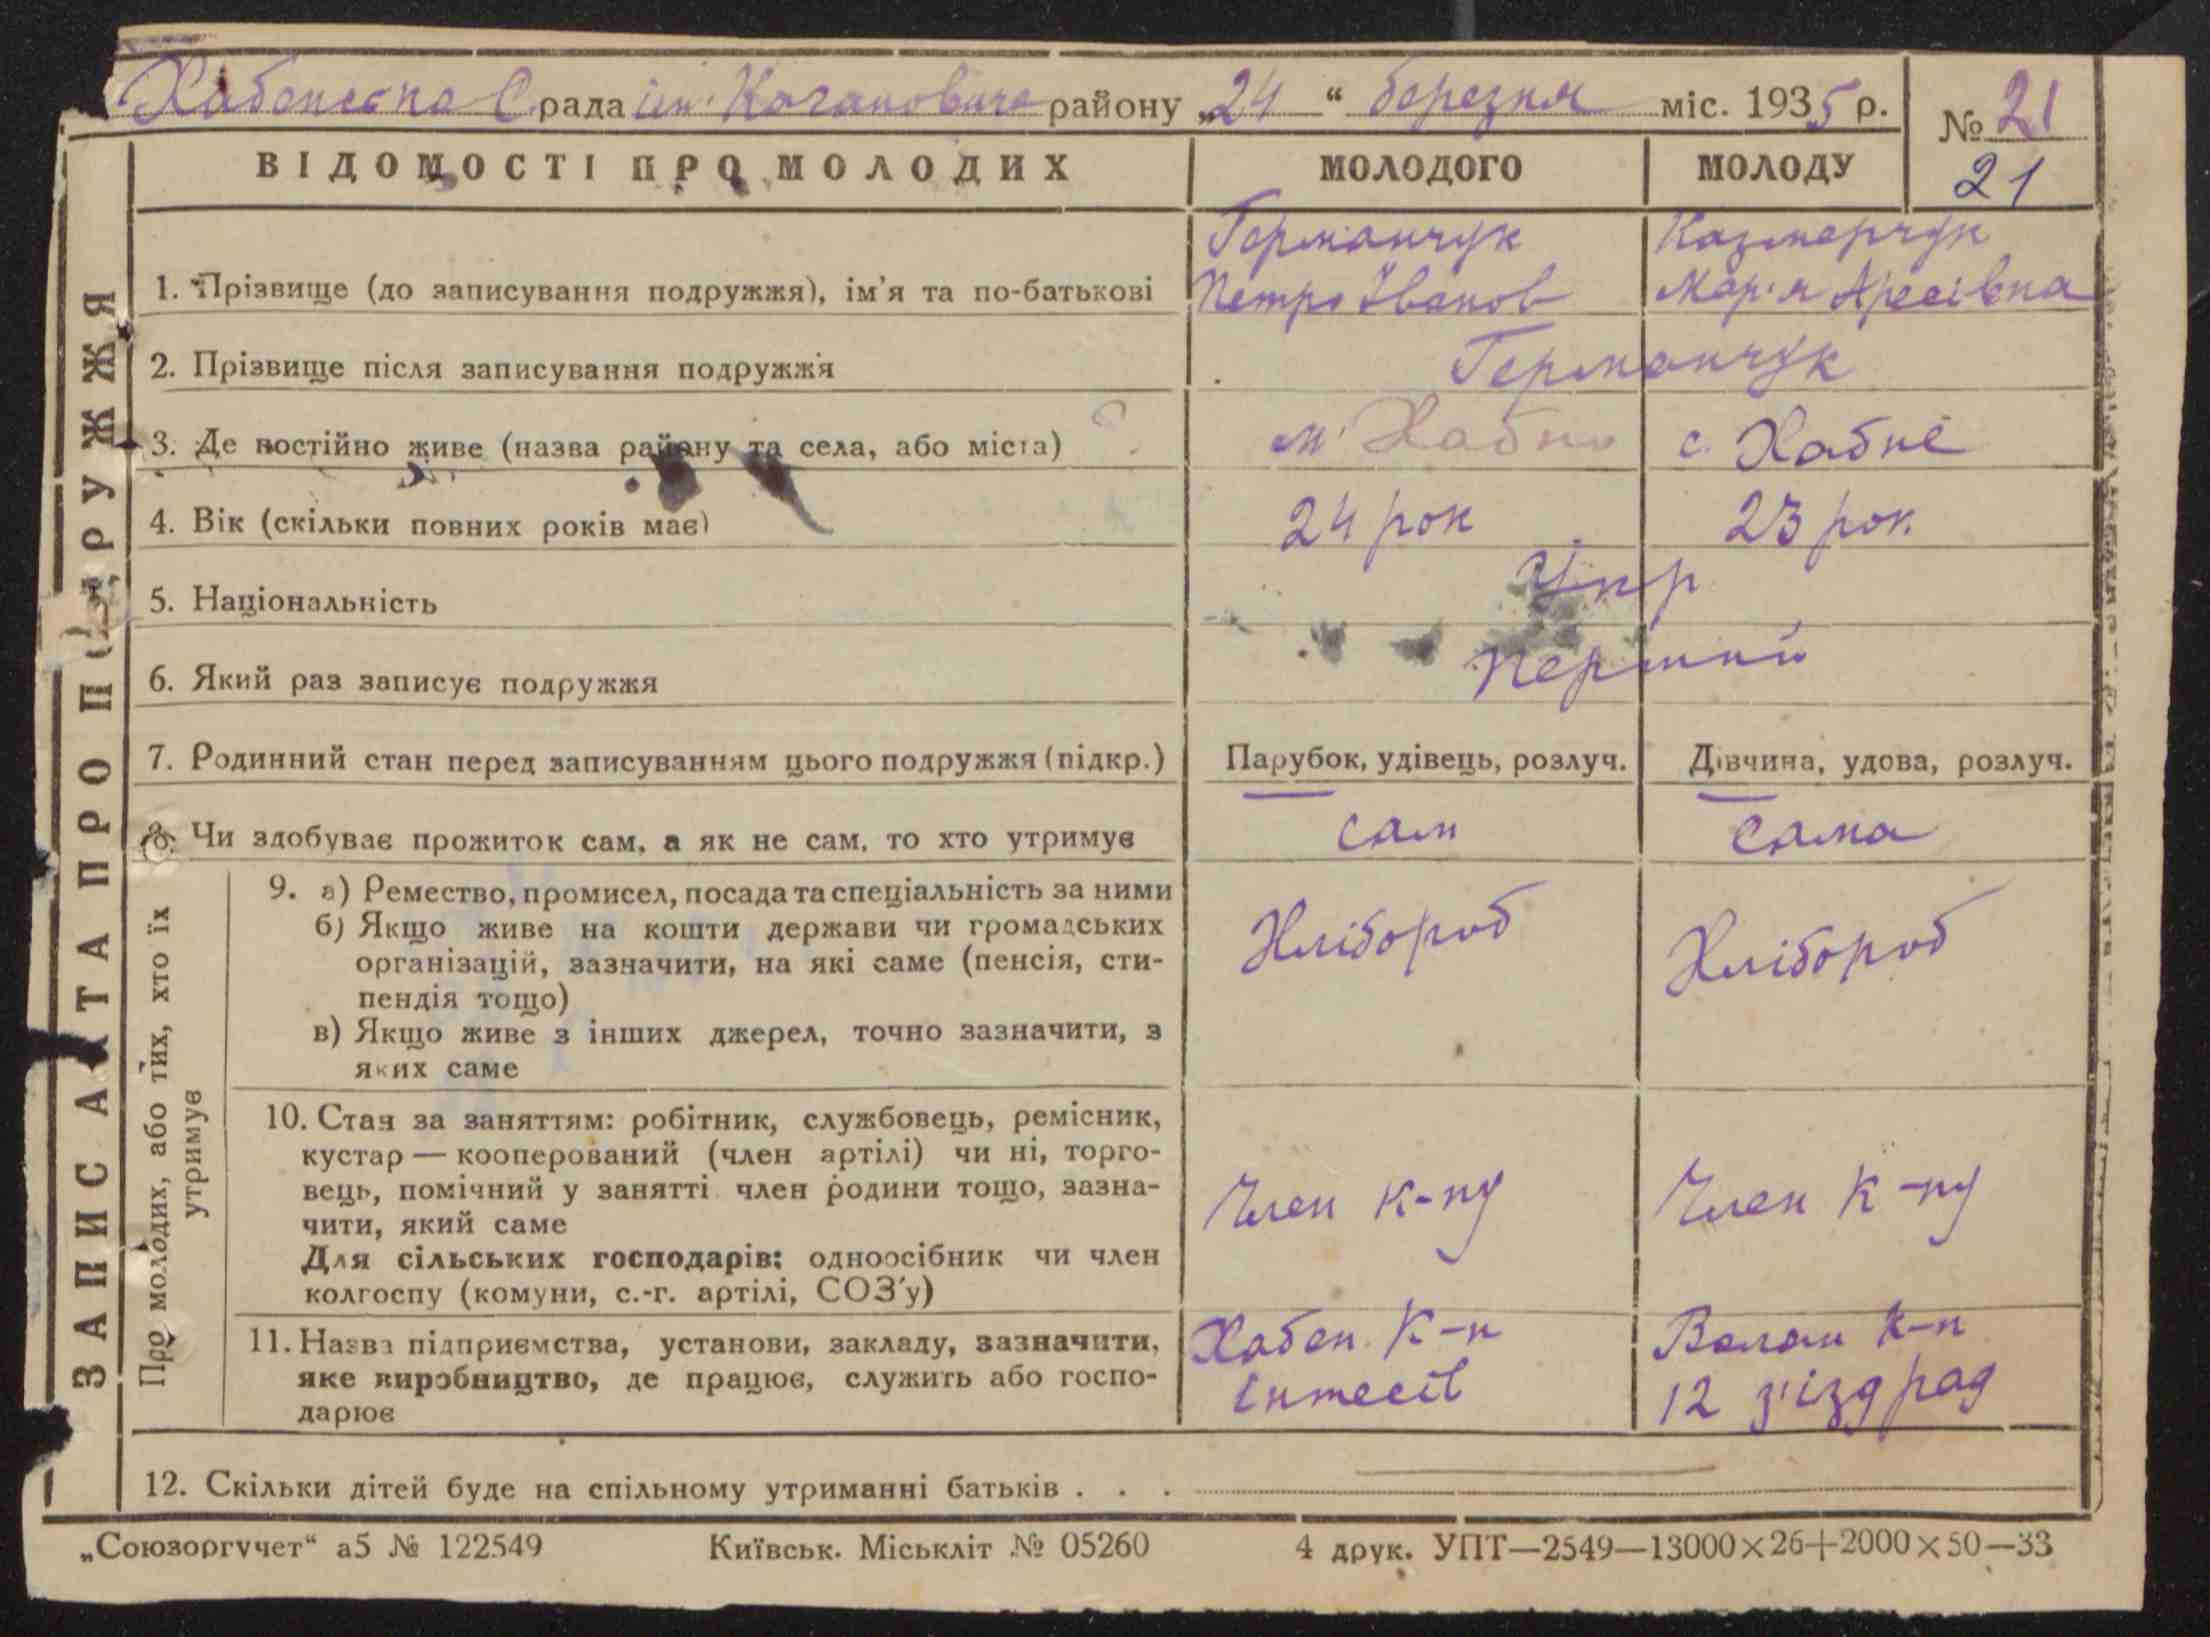 Хабенська С. рада ім. Кагановича району „24“ березня міс. 1935 р.
№ 21
21
ВІДОМОСТІ ПРО МОЛОДИХ
МОЛОДОГО
МОЛОДУ
ЗАПИС АКТА ПРО ПОДРУЖЖЯ
1. Прізвище (до записування подружжя), ім'я та по-батькові
Германчук
Петро Іванов
Казмерчук
Мар'я
2. Прізвище після записування подружжя
Германчук
3. Де постійно живе (назва району та села, або міста)
м. Хабно
с. Хабне
4. Вік (скільки повних років має)
24 рок
23 рок.
5. Національність
Укр
6. Який раз записує подружжя
перший
7. Родинний стан перед записуванням цього подружжя (підкр.)
Парубок, удівець, розлуч.
Дівчина, удова, розлуч.
8. Чи здобуває прожиток сам, а як не сам, то хто утримує
сам
сама
Про молодих, або тих, хто їх
утримує
9. а) Ремество, промисел, посада та спеціальність за ними
б) Якщо живе на кошти держави чи громадських
організацій, зазначити, на які саме (пенсія, сти-
пендія тощо)
в) Якщо живе з інших джерел, точно зазначити, з
яких саме
Хлібороб
Хлібороб
10. Стан за заняттям: робітник, службовець, ремісник,
кустар — кооперований (член артілі) чи ні, торго-
вець, помічний у занятті член родини тощо, зазна-
чити, який саме
Для сільських господарів: одноосібник чи член
колгоспу (комуни, с.-г. артілі, СОЗ'у)
Член к-пу
Член к-пу
11. Назва підприємства, установи, закладу, зазначити,
яке виробництво, де працює, служить або госпо-
дарює
Хабен. К-п
к-п
12 з'їзд рад
12. Скільки дітей буде на спільному утриманні батьків . . .
„Союзоргучет“ а5 № 122549
Київськ. Міськліт № 05260
4 друк. УПТ—2549—13000×26+2000×50—33